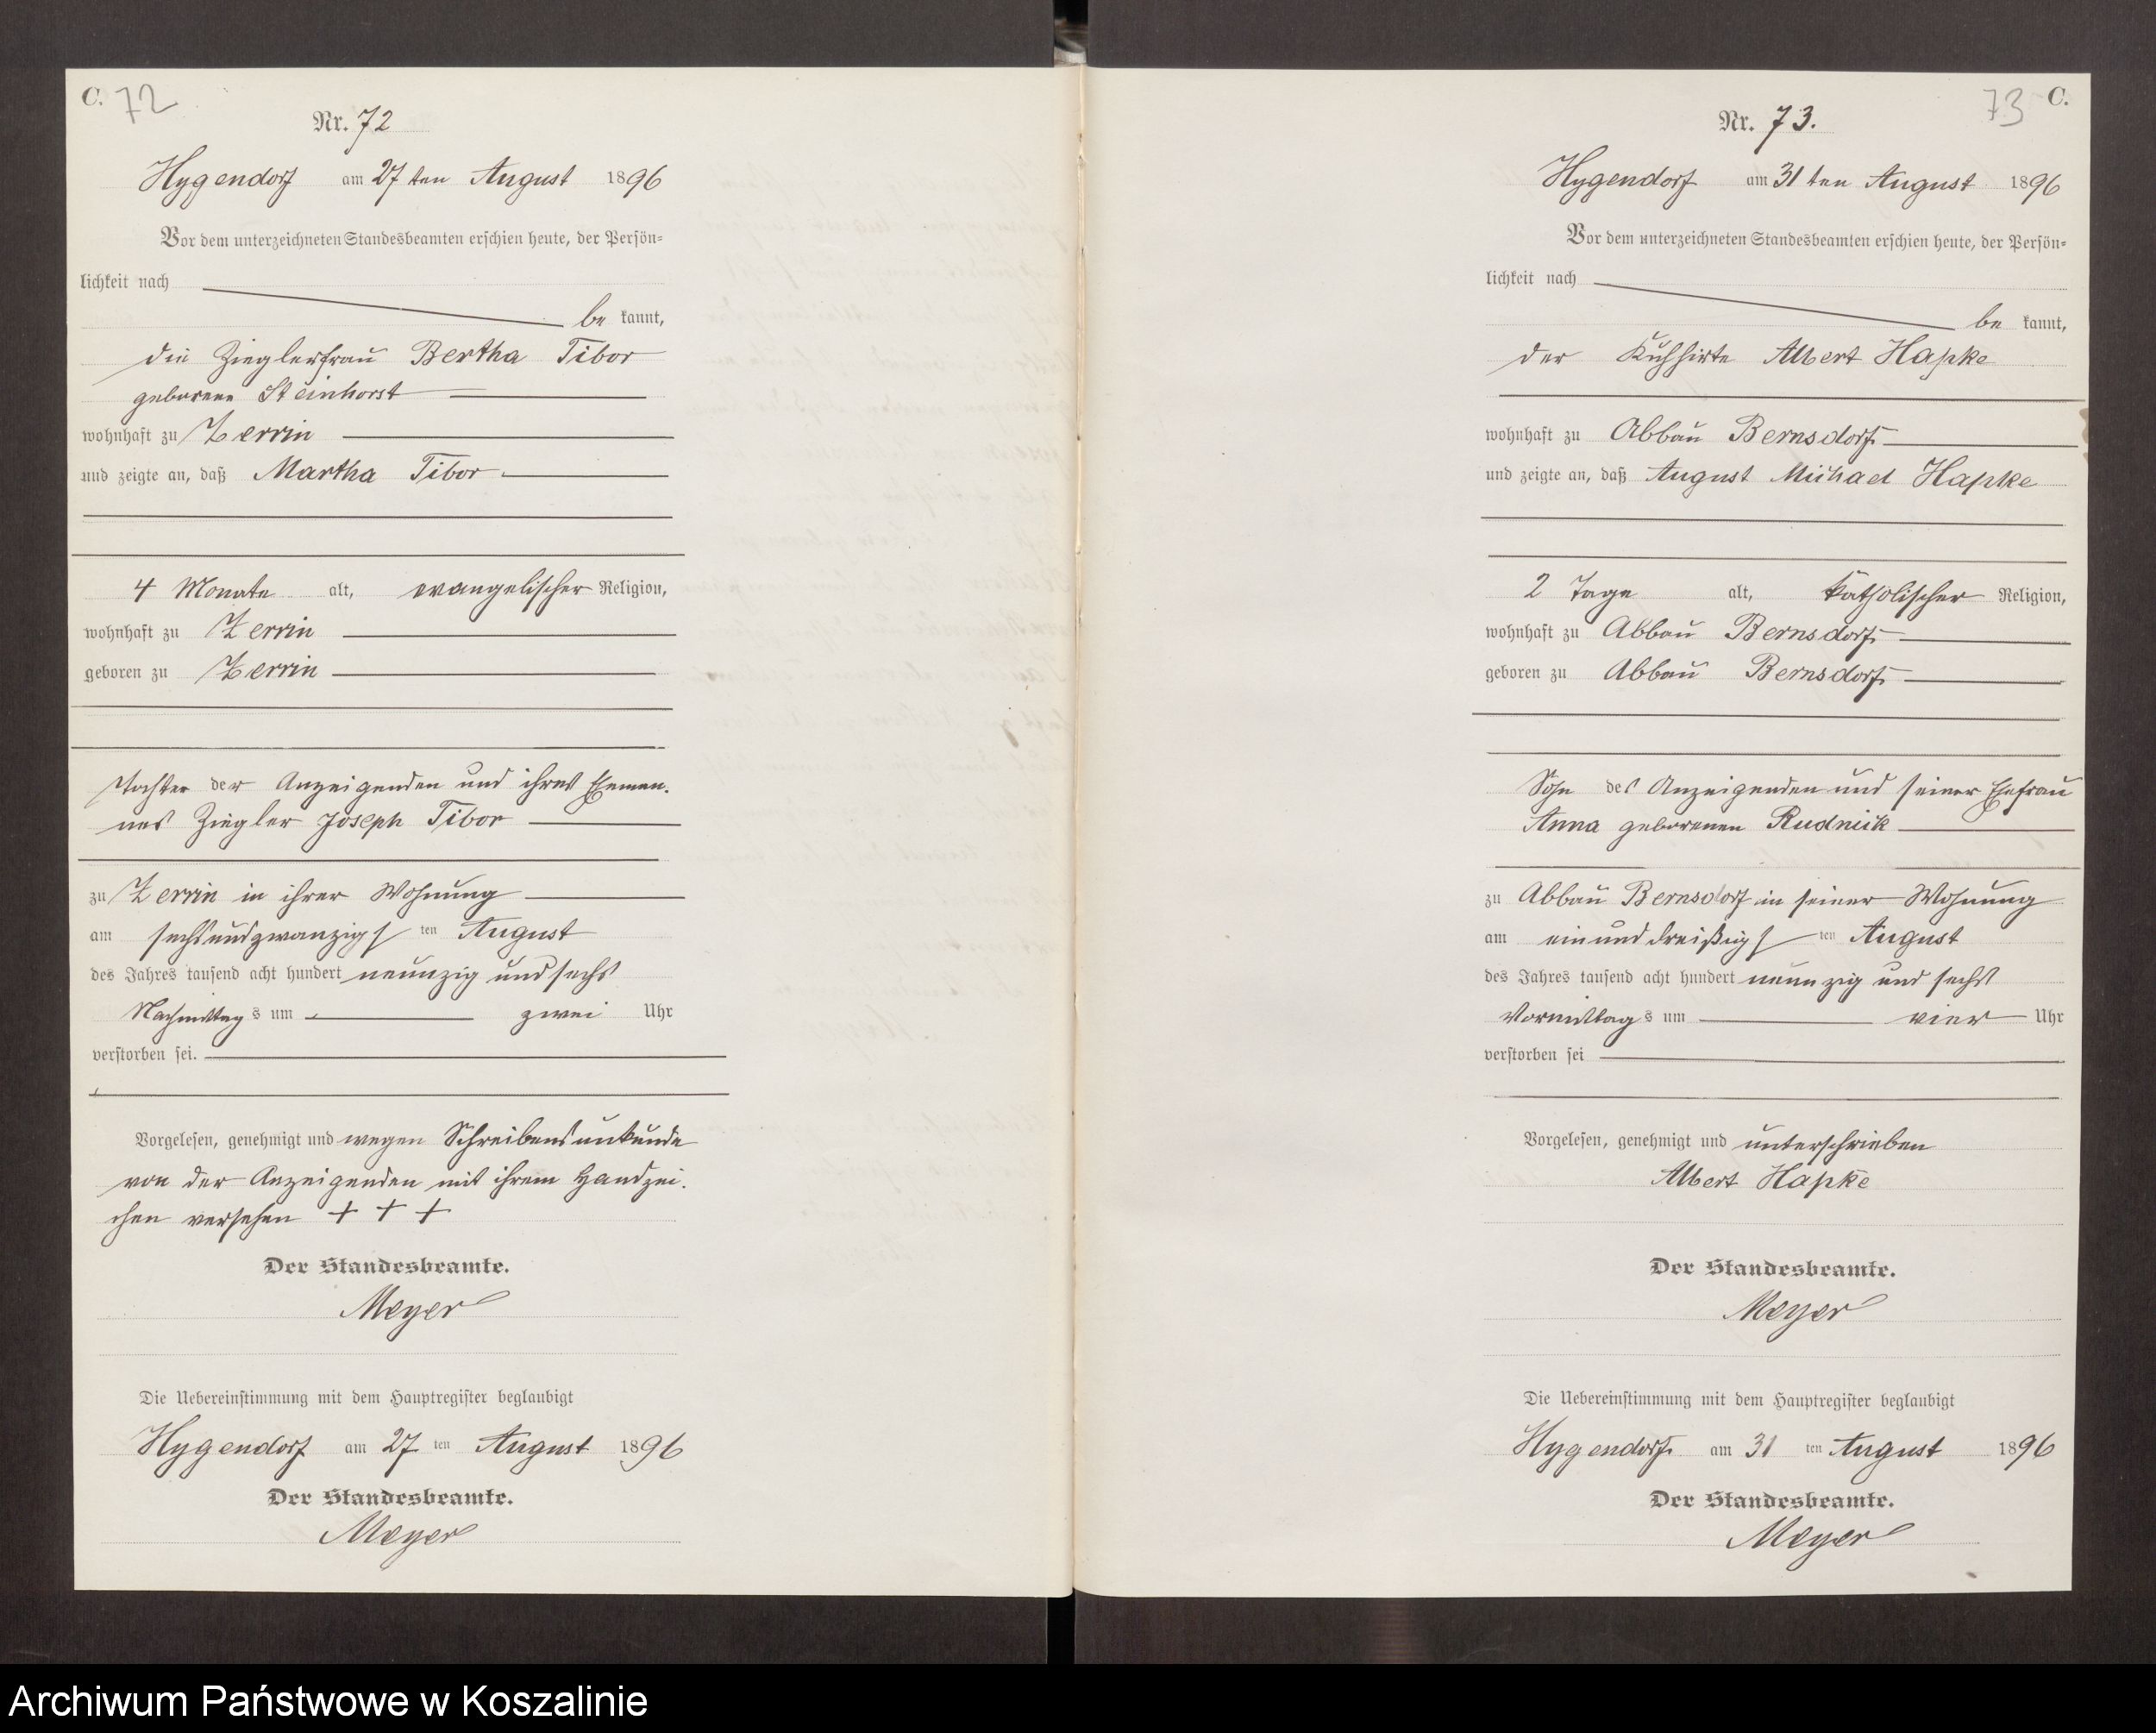 C. 72
Nr. 72
Hygendorf am 27 ten August 1896
Vor dem unterzeichneten Standesbeamten erschien heute, der Persön=
lichkeit nach
be kannt,
die Zieglerfrau Bertha Tibor
geborene Steinhorst
wohnhaft zu Zerrin
und zeigte an, daß Martha Tibor
4 Monate alt, evangelischer Religion,
wohnhaft zu Zerrin
geboren zu Zerrin
Tochter der Anzeigenden und ihres Eheman-
nes Ziegler Joseph Tibor
zu Zerrin in ihrer Wohnung
am sechsundzwanzigs ten August
des Jahres tausend acht hundert neunzig und sechs
Nachmittag s um zwei Uhr
verstorben sei.
Vorgelesen, genehmigt und wegen Schreibensunkunde
von der Anzeigenden mit ihrem Handzei-
chen versehen + + +
Der Standesbeamte.
Meyer
Die Uebereinstimmung mit dem Hauptregister beglaubigt
Hygendorf am 27 ten August 1896
Der Standesbeamte.
Meyer
73 C.
Nr. 73.
Hygendorf am 31 ten August 1896
Vor dem unterzeichneten Standesbeamten erschien heute, der Persön=
lichkeit nach
be kannt,
der Kuhhirte Albert Hapke
wohnhaft zu Abbau Bernsdorf
und zeigte an, daß August Michael Hapke
2 Tage alt, katholischer Religion,
wohnhaft zu Abbau Bernsdorf
geboren zu Abbau Bernsdorf
Sohn des Anzeigenden und seiner Ehefrau
Anna geborenen Rudnick
zu Abbau Bernsdorf in seiner Wohnung
am einunddreißigs ten August
des Jahres tausend acht hundert neunzig und sechs
Vormittag s um vier Uhr
verstorben sei
Vorgelesen, genehmigt und unterschrieben
Albert Hapke
Der Standesbeamte.
Meyer
Die Uebereinstimmung mit dem Hauptregister beglaubigt
Hygendorf am 31 ten August 1896
Der Standesbeamte.
Meyer
Archiwum Państwowe w Koszalinie